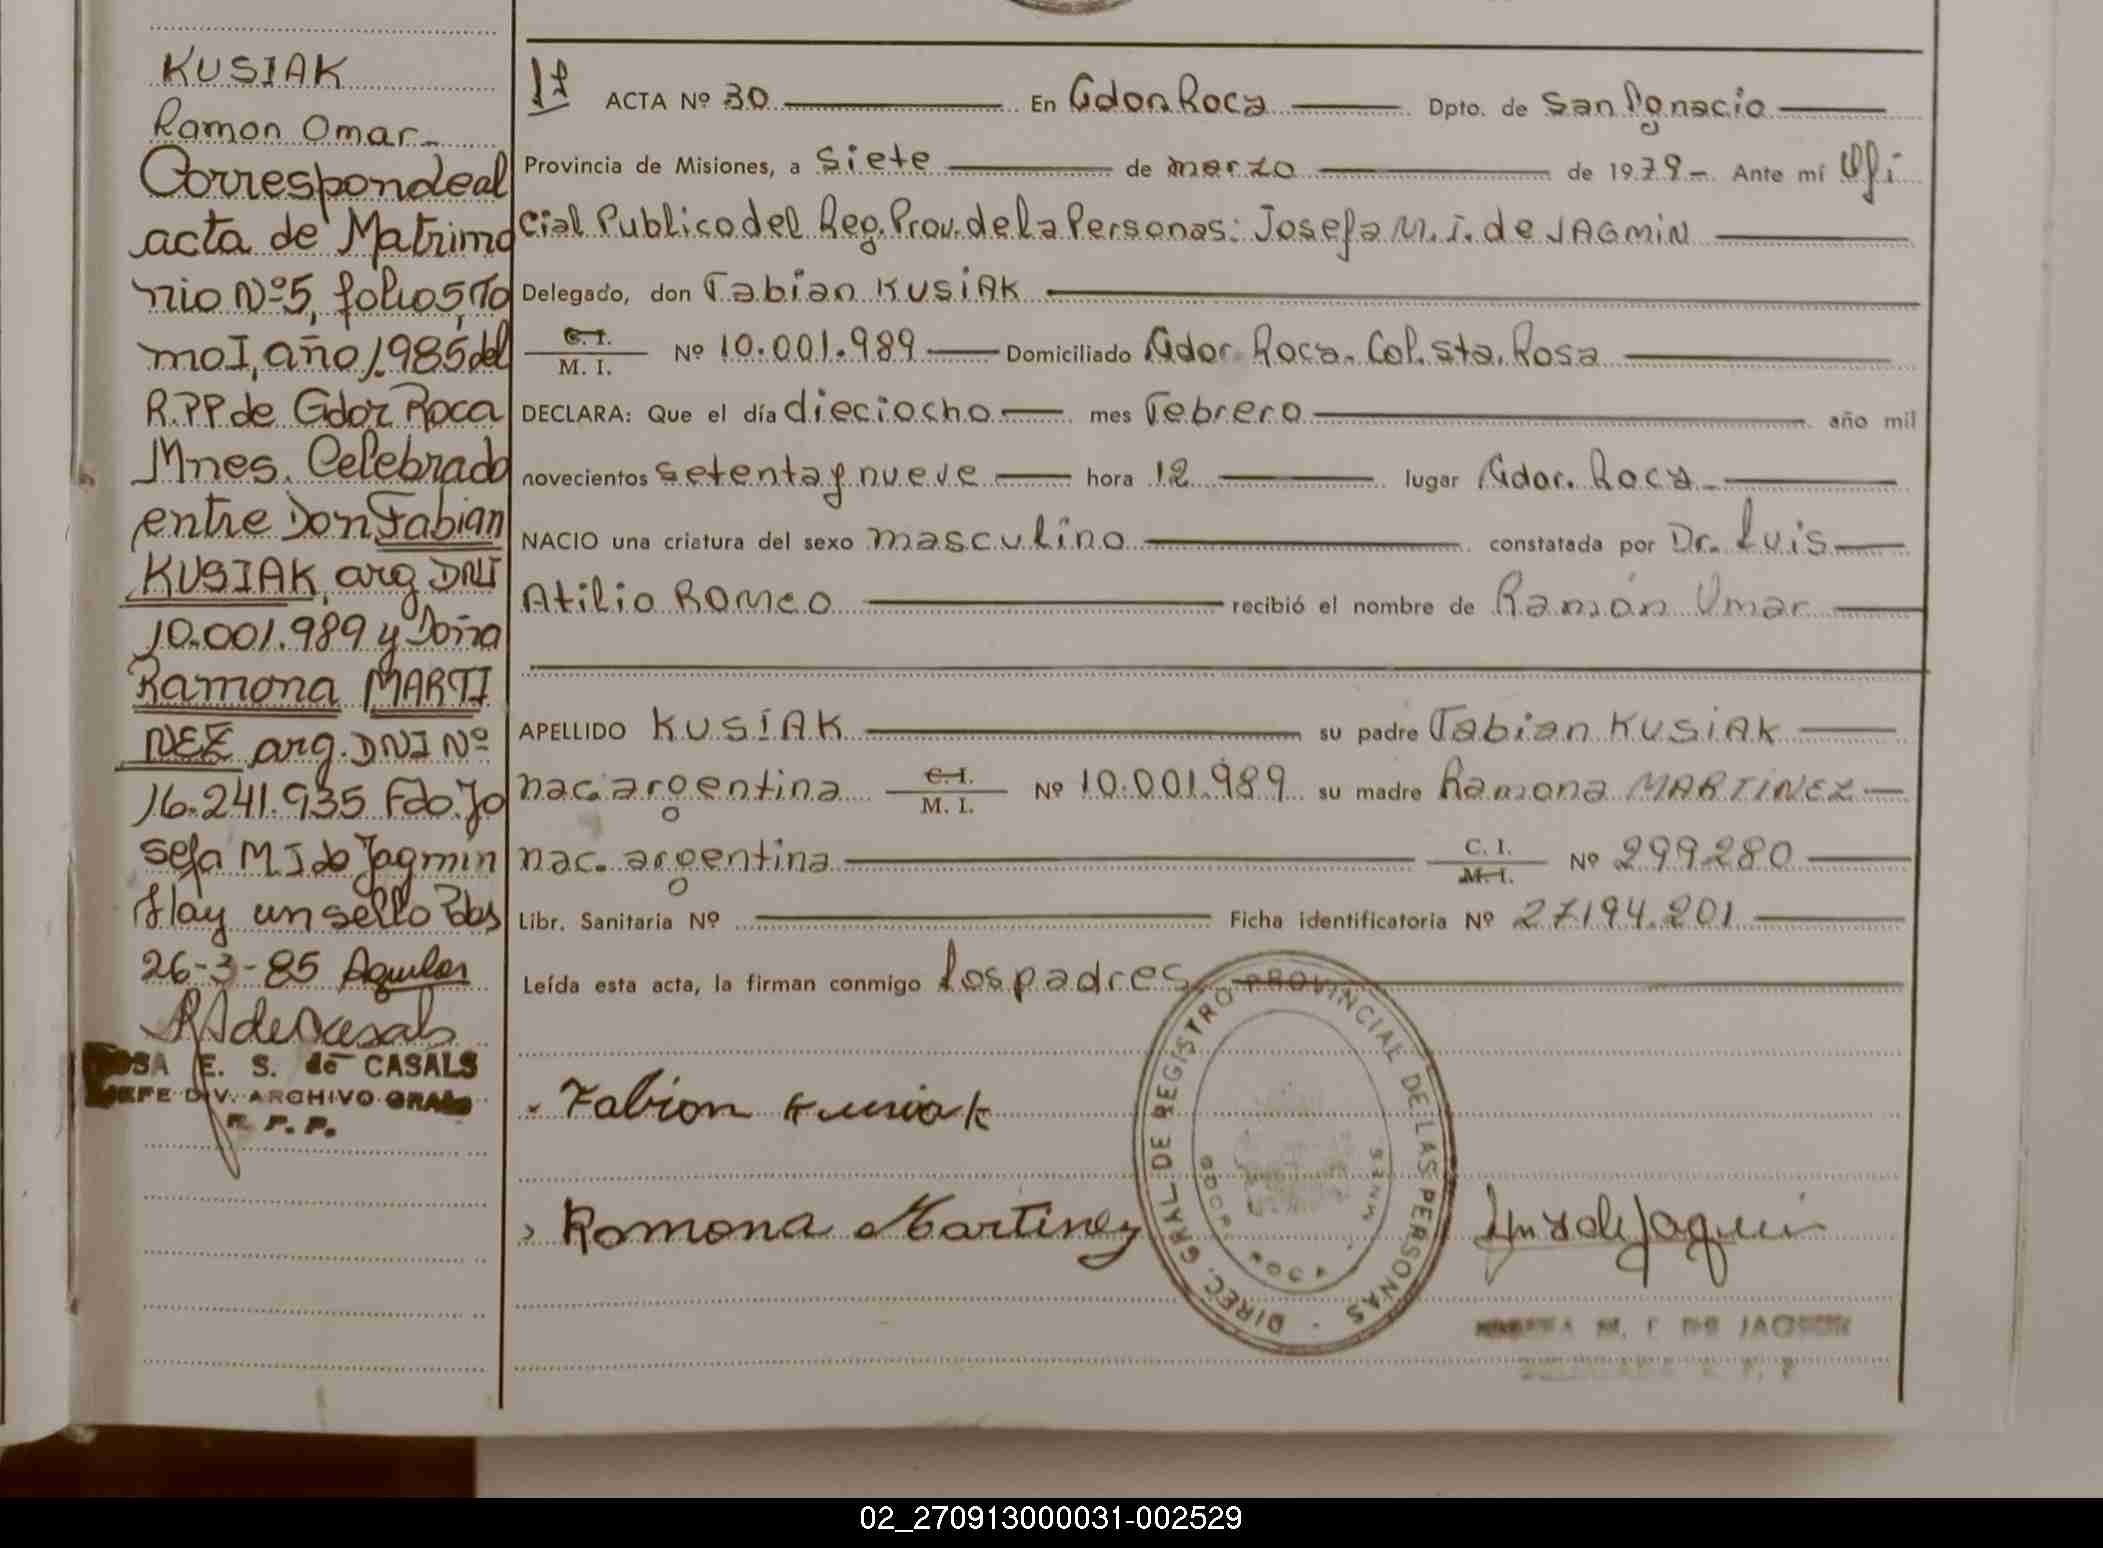 KUSIAK
Ramon Omar-
Corresponde al
acta de Matrimo
nio Nº5, folio 5, To
mo I, año 1.985 del
R.P.P de Gdor Roca
Mnes. Celebrado
entre Don Fabian
KUSIAK, arg DNI
10.001.989 y Doña
Ramona MARTI
NEZ arg. DNI Nº
16.241.935 Fdo. Jo
sefa M. I de Jagmin
Hay un sello Pdas
26-3-85 Aguilar
E. S. de CASALS
JEFE DIV. ARCHIVO GRAL
R. P. P.
ACTA Nº 30 En Gdor. Roca Dpto. de San Ignacio
Provincia de Misiones, a Siete de marzo de 1979- Ante mí Ofi
cial Publico del Reg. Prov. de la Personas: Josefa M. I. de JAGMIN
Delegado, don Fabian KUSIAK
C. I.
M. I. Nº 10.001.989 Domiciliado Gdor Roca. Col. Sta. Rosa
DECLARA: Que el día dieciocho mes Febrero año mil
novecientos setenta y nueve hora 12 lugar Gdor. Roca
NACIO una criatura del sexo masculino constatada por Dr. Luis
Atilio ROMEO recibió el nombre de Ramón Omar
APELLIDO KUSIAK su padre Fabian KUSIAK
nac. argentina C. I. M. I. Nº 10.001.989 su madre Ramona MARTINEZ
nac. argentina C. I. M. I. Nº 299280
Libr. Sanitaria Nº Ficha identificatoria Nº 27194.201
Leída esta acta, la firman conmigo los padres
Fabian Kusiak
Ramona Martinez
DIREC. GRAL. DE REGISTRO PROVINCIAL DE LAS PERSONAS
GDOR. ROCA MNES.
M. I DE JAGMIN
02_270913000031-002529